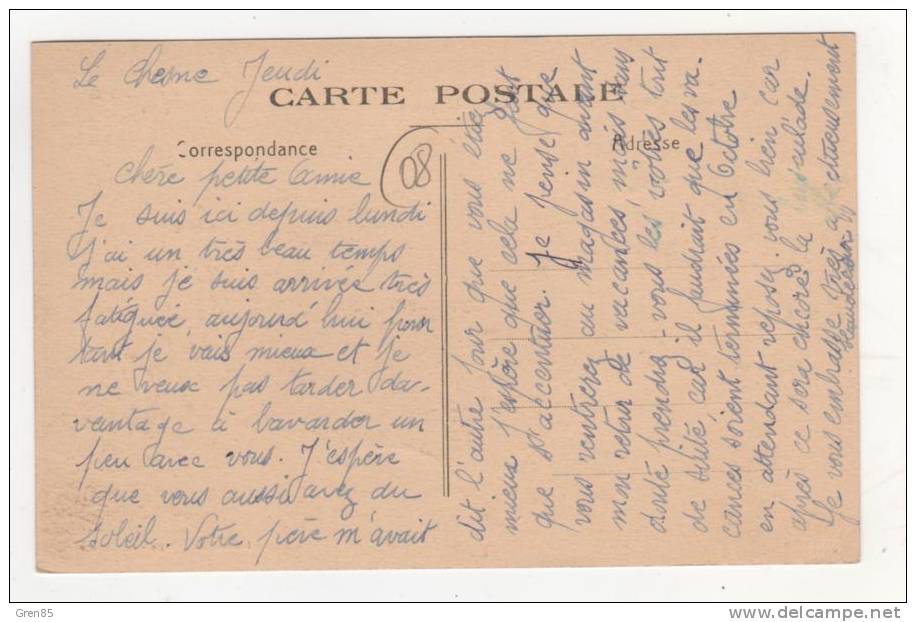 Le Chesne Jeudi
CARTE POSTALE
Correspondance
Adresse
08
Chère petite Amie
Je suis ici depuis lundi
j'ai un très beau temps
mais je suis arrivée très
fatiguée, aujourd'hui pour
tant je vais mieux et je
ne veux pas tarder da-
vantage à bavarder un
peu avec vous. J'espère
que vous aussi avez du
soleil. Votre père m'avait
dit l'autre jour que vous étiez
mieux j'espère que cela ne fait
que s'accentuer. Je pense que
vous rentrerez au magasin avant
mon retour de vacances, mais sans
doute prendrez-vous les vôtres tout
de suite car il faudrait que les va.
cances soient terminées en Octobre
en attendant reposez-vous bien car
après ce sera encore la
Je vous embrasse très affectueusement
Gren85
www.delcampe.net